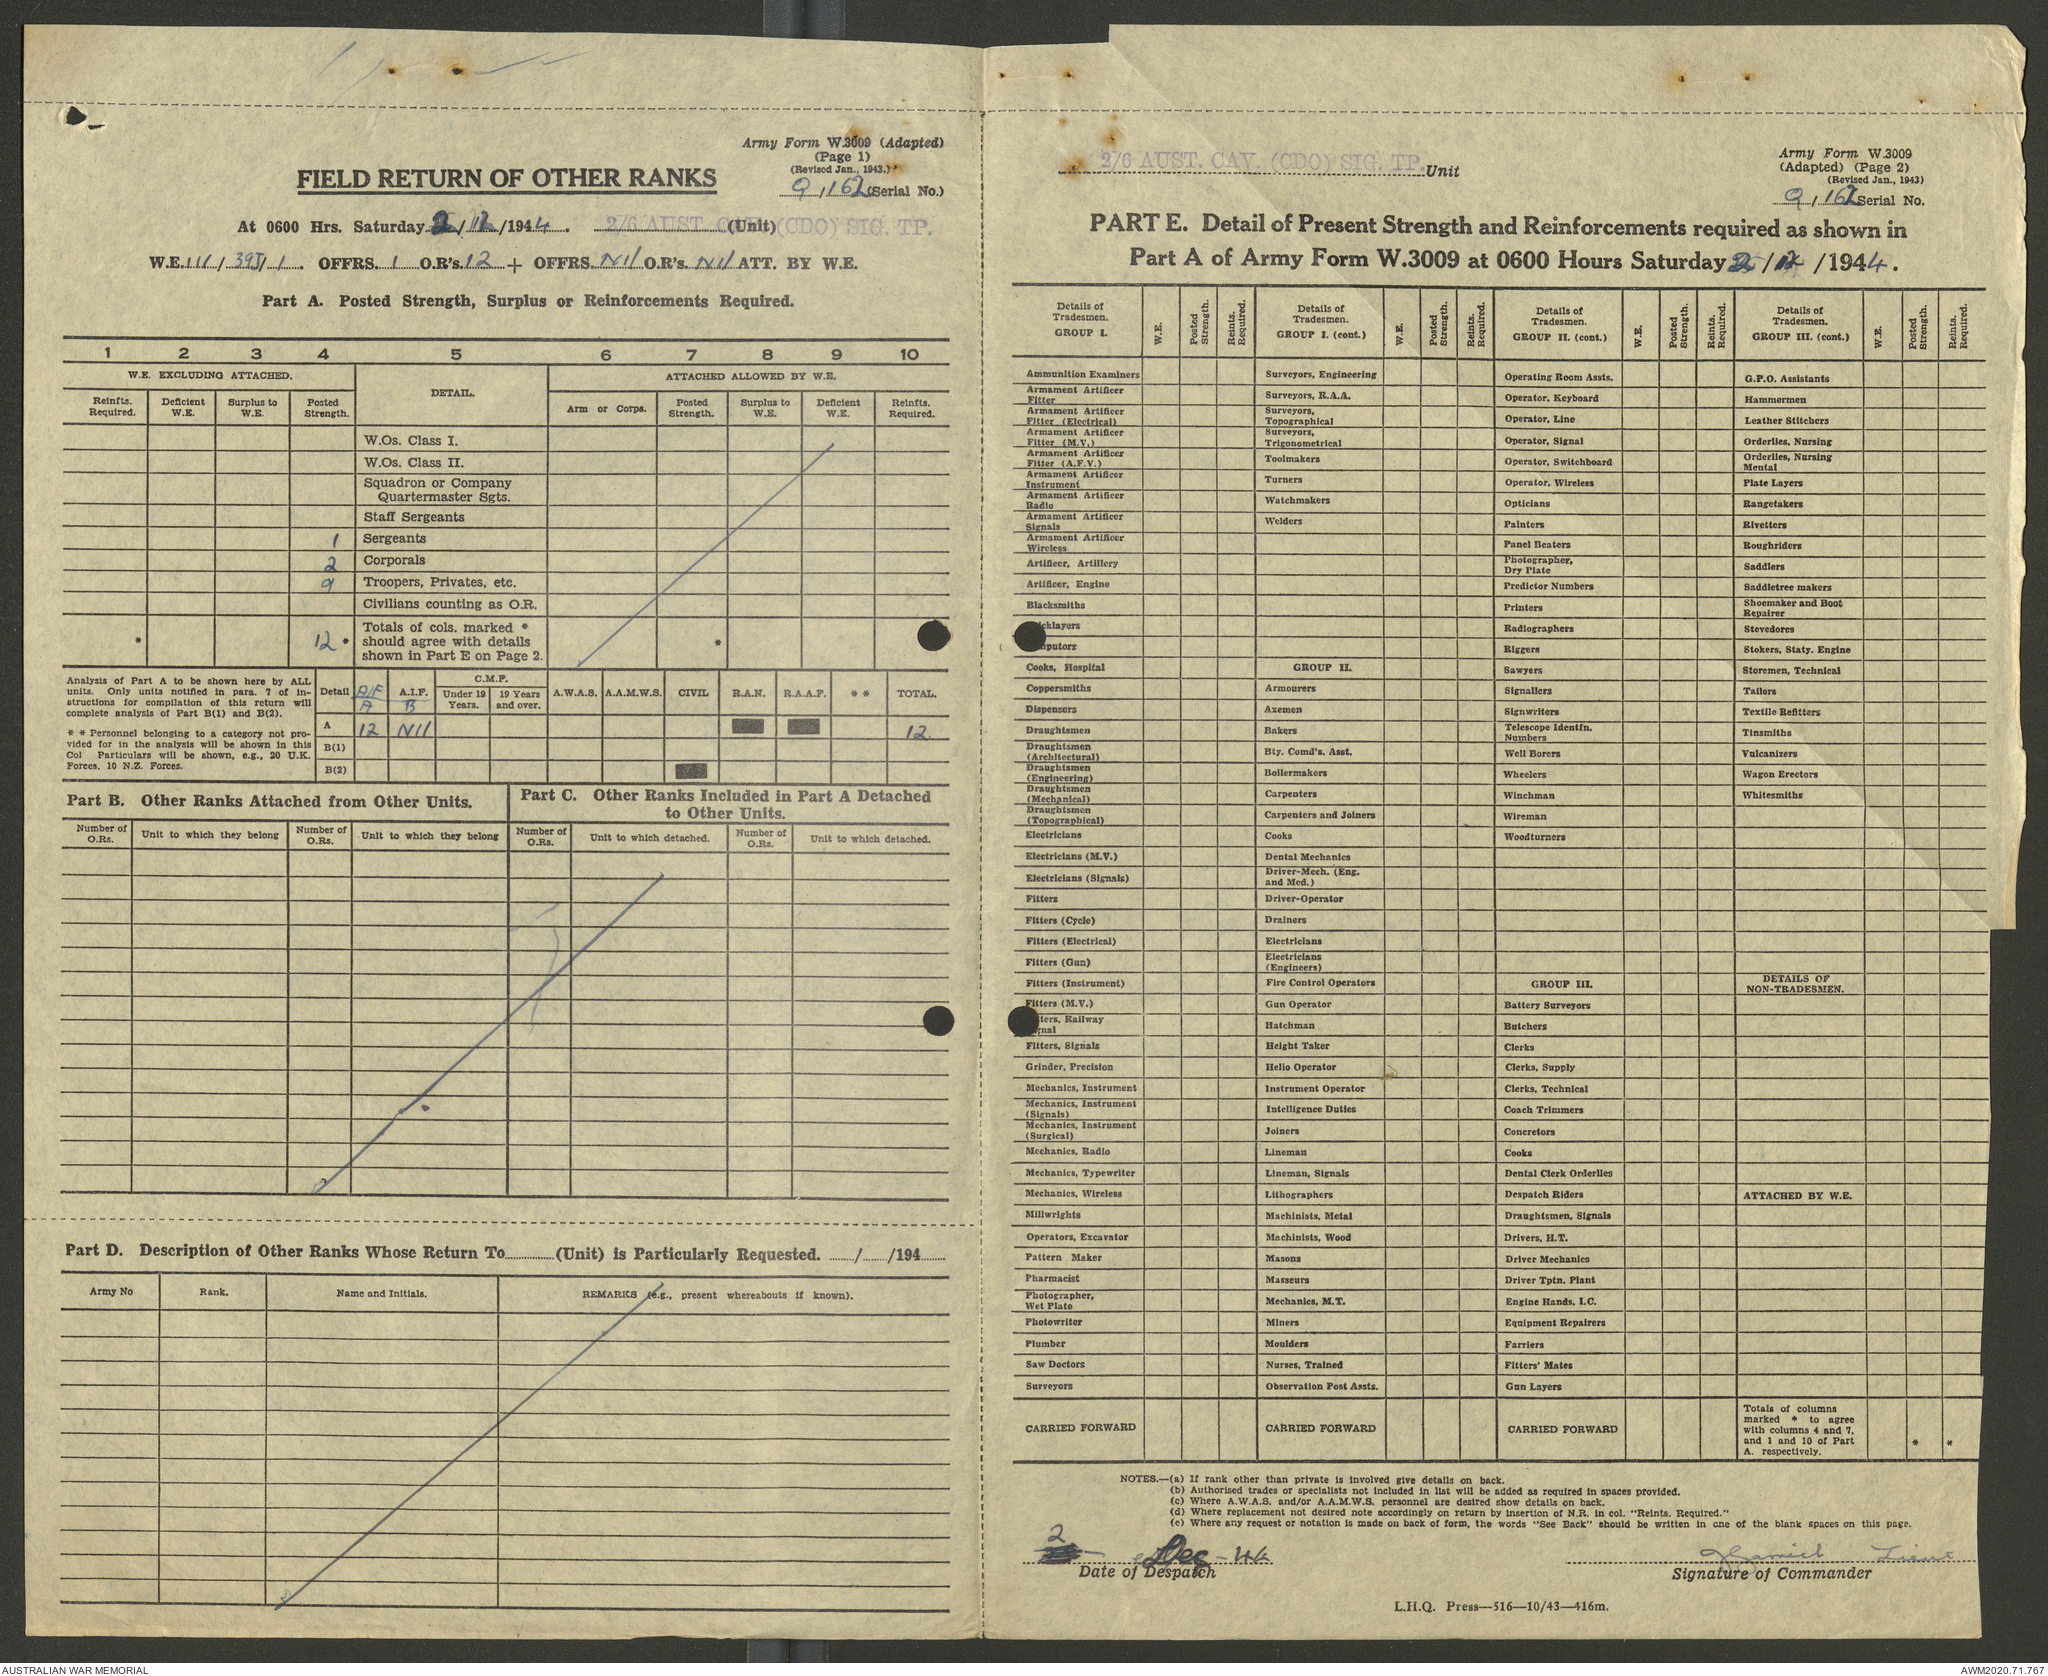 Army Form W.3009 (Adapted)
(Page 1)
(Revised Jan., 1943.)
FIELD RETURN OF OTHER RANKS
9,162 (Serial No.)
At 0600 Hrs. Saturday 2/12/1944. 2/6 AUST. CAV. (CDO) SIG. TP. (Unit)
W.E. III/39J/1. OFFRS. 1 O.R's. 12 + OFFRS. Nil O.R's. Nil ATT. BY W.E.
Part A. Posted Strength, Surplus or Reinforcements Required.
1 2 3 4 5 6 7 8 9 10
W.E. EXCLUDING ATTACHED. DETAIL. ATTACHED ALLOWED BY W.E.
Reinfts. Required. Deficient W.E. Surplus to W.E. Posted Strength. Arm or Corps. Posted Strength. Surplus to W.E. Deficient W.E. Reinfts. Required.
W.Os. Class I.
W.Os. Class II.
Squadron or Company
Quartermaster Sgts.
Staff Sergeants
1 Sergeants
2 Corporals
9 Troopers, Privates, etc.
Civilians counting as O.R.
* 12 * Totals of cols. marked * *
should agree with details
shown in Part E on Page 2.
Analysis of Part A to be shown here by ALL
units. Only units notified in para. 7 of in-
structions for compilation of this return will
complete analysis of Part B(1) and B(2).
* * Personnel belonging to a category not pro-
vided for in the analysis will be shown in this
Col Particulars will be shown, e.g., 20 U.K.
Forces, 10 N.Z. Forces.
Detail A.I.F. C.M.F. A.W.A.S. A.A.M.W.S. CIVIL R.A.N. R.A.A.F. * * TOTAL.
A B Under 19 Years. 19 Years and over.
A 12 Nil 12
B(1)
B(2)
Part B. Other Ranks Attached from Other Units.
Number of O.Rs. Unit to which they belong Number of O.Rs. Unit to which they belong
Part C. Other Ranks Included in Part A Detached
to Other Units.
Number of O.Rs. Unit to which detached. Number of O.Rs. Unit to which detached.
Part D. Description of Other Ranks Whose Return To (Unit) is Particularly Requested. / /194
Army No Rank. Name and Initials. REMARKS (e.g., present whereabouts if known).
2/6 AUST. CAV. (CDO) SIG. TP. Unit
Army Form W.3009
(Adapted) (Page 2)
(Revised Jan., 1943)
9,162 Serial No.
PART E. Detail of Present Strength and Reinforcements required as shown in
Part A of Army Form W.3009 at 0600 Hours Saturday 2/12/1944.
Details of Tradesmen. GROUP I. W.E. Posted Strength. Reints. Required.
Ammunition Examiners
Armament Artificer
Fitter
Armament Artificer
Fitter (Electrical)
Armament Artificer
Fitter (M.V.)
Armament Artificer
Fitter (A.F.V.)
Armament Artificer
Instrument
Armament Artificer
Radio
Armament Artificer
Signals
Armament Artificer
Wireless
Artificer, Artillery
Artificer, Engine
Blacksmiths
icklayers
putors
Cooks, Hospital
Coppersmiths
Dispensers
Draughtsmen
Draughtsmen
(Architectural)
Draughtsmen
(Engineering)
Draughtsmen
(Mechanical)
Draughtsmen
(Topographical)
Electricians
Electricians (M.V.)
Electricians (Signals)
Fitters
Fitters (Cycle)
Fitters (Electrical)
Fitters (Gun)
Fitters (Instrument)
Fitters (M.V.)
ters, Railway
gnal
Fitters, Signals
Grinder, Precision
Mechanics, Instrument
Mechanics, Instrument
(Signals)
Mechanics, Instrument
(Surgical)
Mechanics, Radio
Mechanics, Typewriter
Mechanics, Wireless
Millwrights
Operators, Excavator
Pattern Maker
Pharmacist
Photographer,
Wet Plate
Photowriter
Plumber
Saw Doctors
Surveyors
CARRIED FORWARD
Details of Tradesmen. GROUP I. (cont.) W.E. Posted Strength. Reints. Required.
Surveyors, Engineering
Surveyors, R.A.A.
Surveyors,
Topographical
Surveyors,
Trigonometrical
Toolmakers
Turners
Watchmakers
Welders
GROUP II.
Armourers
Axemen
Bakers
Bty. Comd's. Asst.
Boilermakers
Carpenters
Carpenters and Joiners
Cooks
Dental Mechanics
Driver-Mech. (Eng.
and Med.)
Driver-Operator
Drainers
Electricians
Electricians
(Engineers)
Fire Control Operators
Gun Operator
Hatchman
Height Taker
Helio Operator
Instrument Operator
Intelligence Duties
Joiners
Lineman
Lineman, Signals
Lithographers
Machinists, Metal
Machinists, Wood
Masons
Masseurs
Mechanics, M.T.
Miners
Moulders
Nurses, Trained
Observation Post Assts.
CARRIED FORWARD
Details of Tradesmen. GROUP II. (cont.) W.E. Posted Strength. Reints. Required.
Operating Room Assts.
Operator, Keyboard
Operator, Line
Operator, Signal
Operator, Switchboard
Operator, Wireless
Opticians
Painters
Panel Beaters
Photographer,
Dry Plate
Predictor Numbers
Printers
Radiographers
Riggers
Sawyers
Signallers
Signwriters
Telescope Identfn.
Numbers
Well Borers
Wheelers
Winchman
Wireman
Woodturners
GROUP III.
Battery Surveyors
Butchers
Clerks
Clerks, Supply
Clerks, Technical
Coach Trimmers
Concretors
Cooks
Dental Clerk Orderlies
Despatch Riders
Draughtsmen, Signals
Drivers, H.T.
Driver Mechanics
Driver Tptn. Plant
Engine Hands, I.C.
Equipment Repairers
Farriers
Fitters' Mates
Gun Layers
CARRIED FORWARD
Details of Tradesmen. GROUP III. (cont.) W.E. Posted Strength. Reints. Required.
G.P.O. Assistants
Hammermen
Leather Stitchers
Orderlies, Nursing
Orderlies, Nursing
Mental
Plate Layers
Rangetakers
Rivetters
Roughriders
Saddlers
Saddletree makers
Shoemaker and Boot
Repairer
Stevedores
Stokers, Staty. Engine
Storemen, Technical
Tailors
Textile Refitters
Tinsmiths
Vulcanizers
Wagon Erectors
Whitesmiths
DETAILS OF
NON-TRADESMEN.
ATTACHED BY W.E.
Totals of columns
marked * to agree
with columns 4 and 7,
and 1 and 10 of Part
A. respectively. * *
NOTES.—(a) If rank other than private is involved give details on back.
(b) Authorised trades or specialists not included in list will be added as required in spaces provided.
(c) Where A.W.A.S. and/or A.A.M.W.S. personnel are desired show details on back.
(d) Where replacement not desired note accordingly on return by insertion of N.R. in col. "Reints. Required."
(e) Where any request or notation is made on back of form, the words "See Back" should be written in one of the blank spaces on this page.
2 - Dec - 44
Date of Despatch
Lieut
Signature of Commander
L.H.Q. Press—516—10/43—416m.
AUSTRALIAN WAR MEMORIAL
AWM2020.71.767